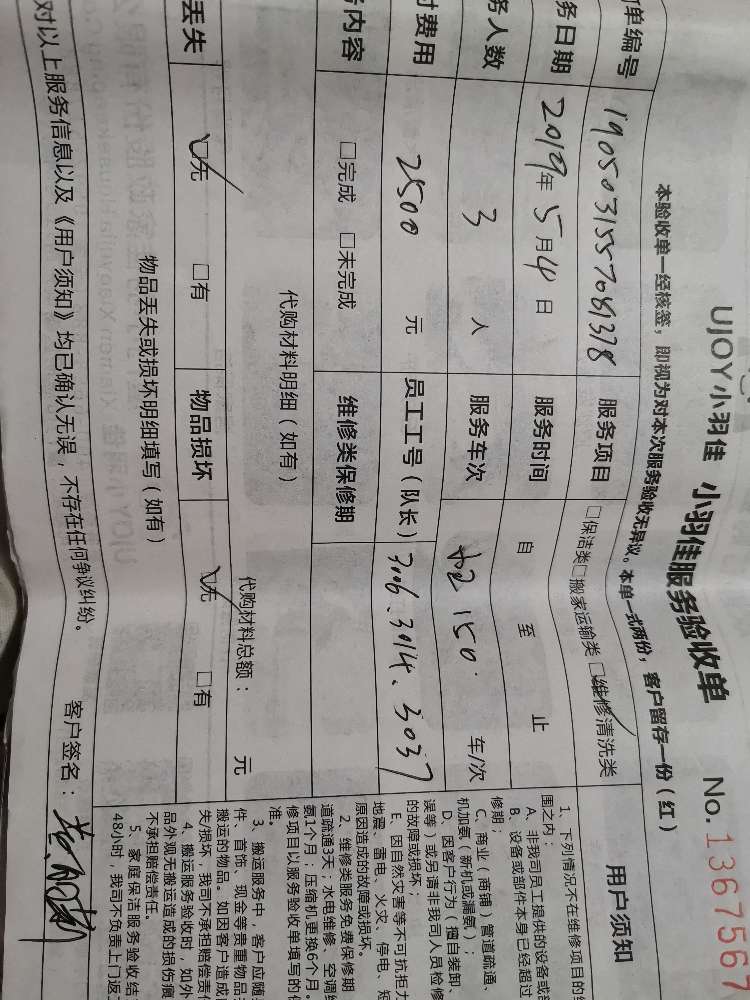 UJOY小羽佳 小羽佳服务验收单 No. 1367567
本验收单一经核签，即视为对本次服务验收无异议。本单一式两份，客户留存一份（红）
单编号 服务项目 □保洁类□搬家运输类 □维修清洗类
务日期 2019年 5月4日 服务时间 自 至 止
务人数 3 人 服务车次 150. 车/次
付费用 2500 元 员工工号（队长） 3006、3014、3037
内容 □完成 □未完成 维修类保修期
代购材料明细（如有）
代购材料总额： 元
丢失 □无 □有 物品损坏 □无 □有
物品丢失或损坏明细填写（如有）
对以上服务信息以及《用户须知》均已确认无误，不存在任何争议纠纷。 客户签名：
用户须知
1、下列情况不在维修项目的
围之内：
A、非我司员工提供的设备或
B、设备或部件本身已经超过
修期；
C、商业（商铺）管道疏通、
机加氨（新机或漏氨）；
D、因客户行为（擅自装卸、
误等）或另请非我司人员检修
的故障或损坏；
E、因自然灾害等不可抗拒力
地震、雷电、火灾、停电、短
原因造成的故障或损坏。
2、维修类服务免费保修期
道疏通3天；水电维修、空调
氨1个月；压缩机更换6个月。
修项目以服务验收单填写的
准。
3、搬运服务中，客户应随
件、首饰、现金等贵重物品
搬运的物品。如因客户造成
失/损坏，我司不承担赔偿责
4、搬运服务验收时，如外
品外观无搬运造成的损伤痕
不承担赔偿责任。
5、家庭保洁服务验收结
48小时，我司不负责上门返工